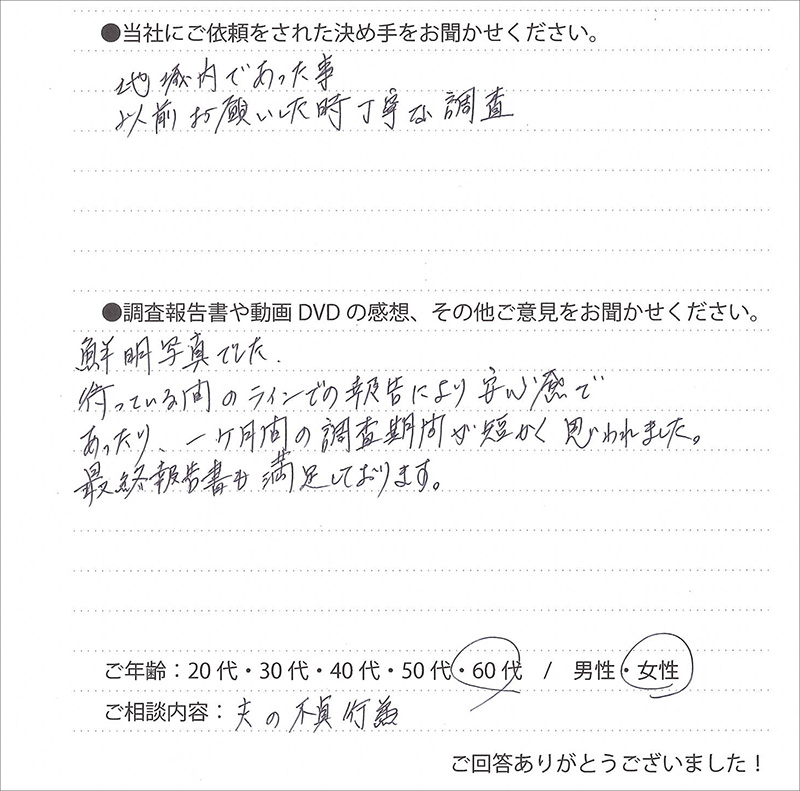 ●当社にご依頼をされた決め手をお聞かせください。
地域内であった事
以前お願いした時丁寧な調査
●調査報告書や動画DVDの感想、その他ご意見をお聞かせください。
鮮明写真でした.
待っている間のラインでの報告により安心感で
あったり、一ケ月間の調査期間が短かく思われました。
最終報告書も満足しております。
ご年齢：20代・30代・40代・50代・60代 / 男性・女性
ご相談内容：夫の不貞行為
ご回答ありがとうございました！